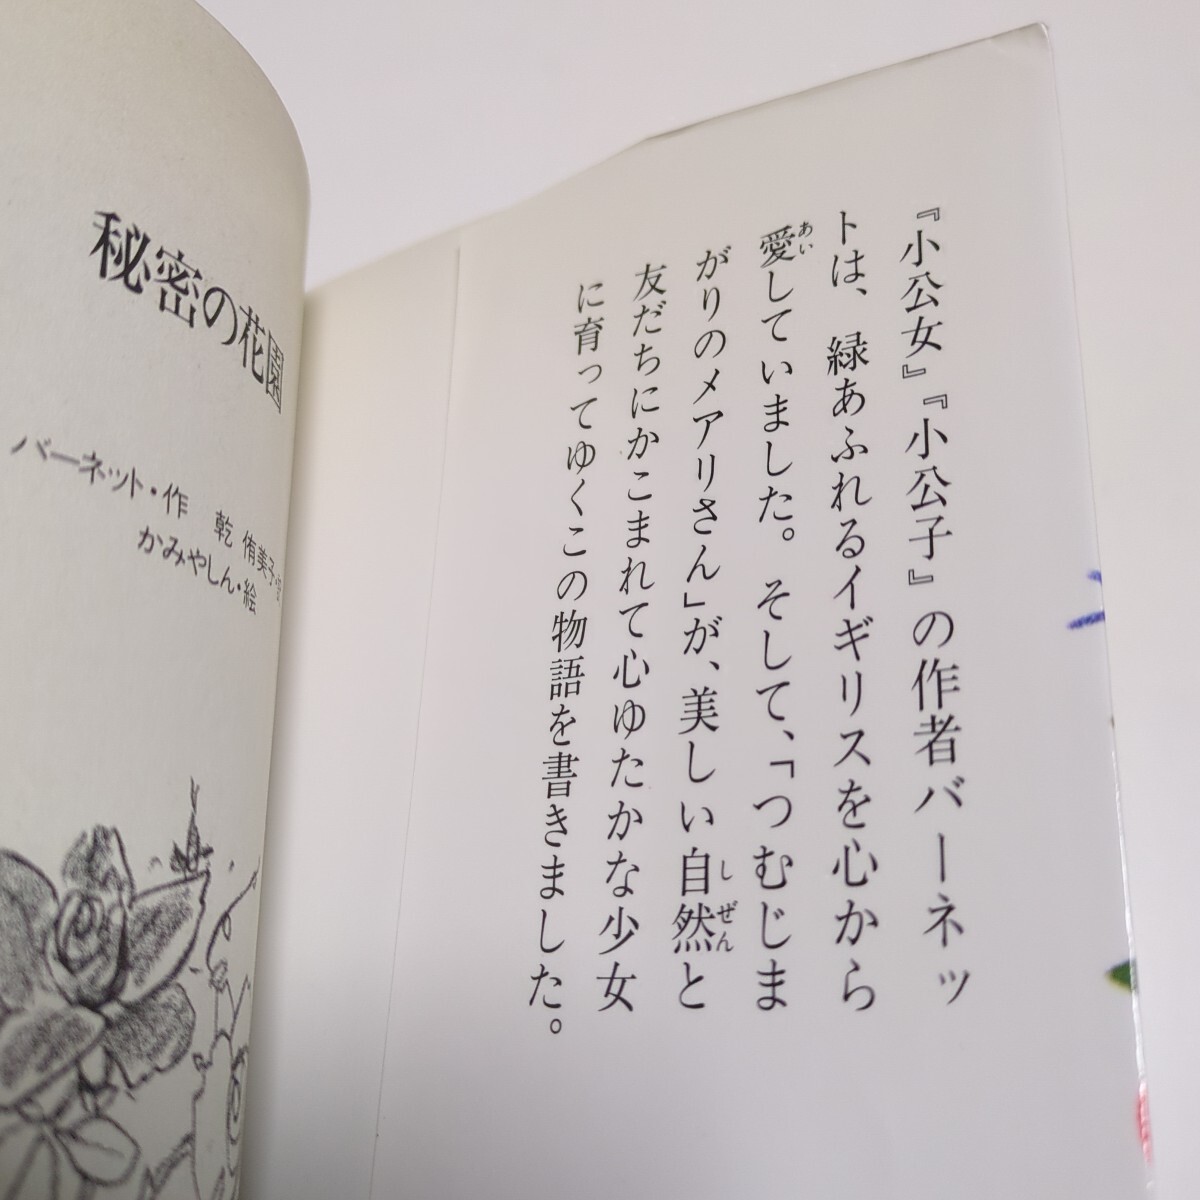 秘密の花園
バーネット・作　乾　侑美子・
かみやしん・絵
『小公女』『小公子』の作者バーネッ
トは、緑あふれるイギリスを心から
愛していました。そして、「つむじま
がりのメアリさん」が、美しい自然と
友だちにかこまれて心ゆたかな少女
に育ってゆくこの物語を書きました。
あい
しぜん